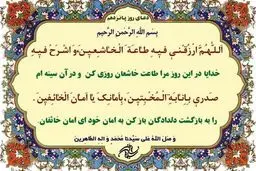 دعای روز پانزدهم
بِسْمِ اللَّهِ الرَّحْمنِ الرَّحِیمِ
اَللّهُمَّ ارْزُقْنی فیهِ طاعَةَ الْخاشِعینَ وَ اشْرَحْ فیهِ
خدایا در این روز مرا طاعت خاشعان روزی کن و در آن سینه ام
صَدری بِاِنابَةِ الْمُخْبِتینَ، بِاَمانِکَ یا اَمانَ الْخائِفینَ.
را به بازگشت دلدادگان باز کن به امان خود ای امان خائفان
وَ صَلَّ اللهُ عَلی سَیِّدِنا مُحَمَّدٍ وَ الِهِ الطّاهِرینَ